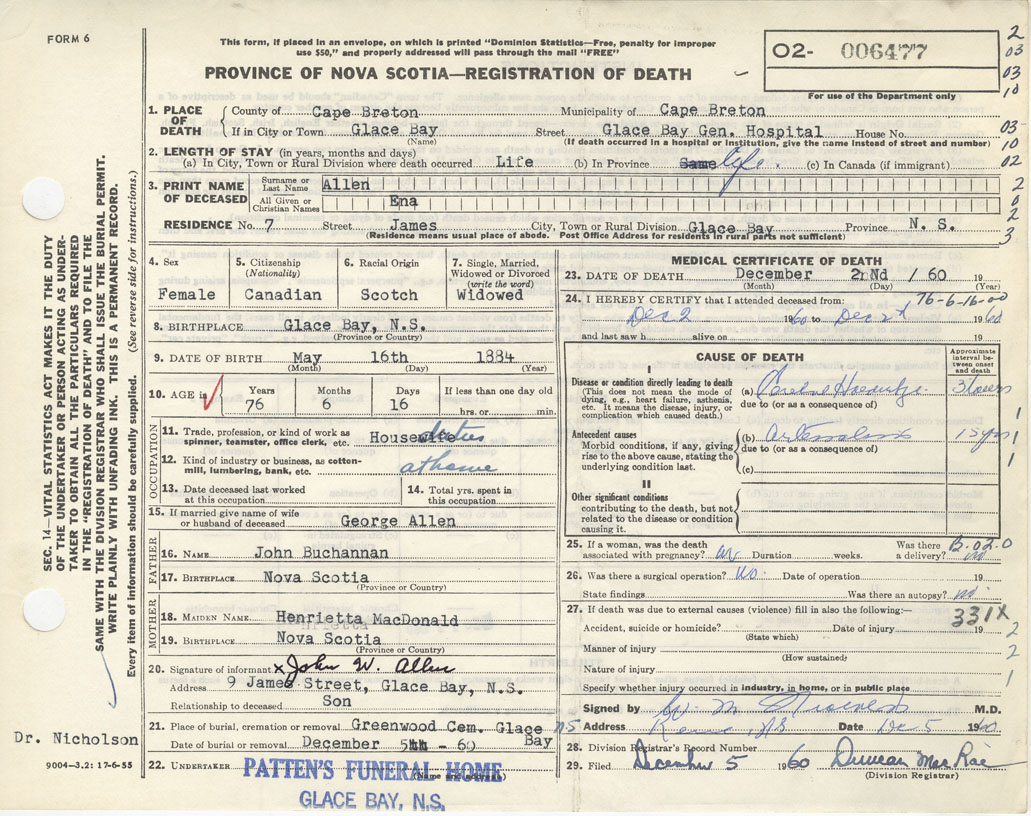 FORM 6
This form, if placed in an envelope, on which is printed "Dominion Statistics—Free, penalty for improper
use $50," and properly addressed will pass through the mail "FREE"
PROVINCE OF NOVA SCOTIA—REGISTRATION OF DEATH
02- 006477
For use of the Department only
2
03
03
10
03-
10
02
2
0
2
3
SEC. 14—VITAL STATISTICS ACT MAKES IT THE DUTY
OF THE UNDERTAKER OR PERSON ACTING AS UNDER-
TAKER TO OBTAIN ALL THE PARTICULARS REQUIRED
IN THE "REGISTRATION OF DEATH" AND TO FILE THE
SAME WITH THE DIVISION REGISTRAR WHO SHALL ISSUE THE BURIAL PERMIT.
WRITE PLAINLY WITH UNFADING INK. THIS IS A PERMANENT RECORD.
Every item of information should be carefully supplied. (See reverse side for instructions.)
Dr. Nicholson
9004—3.2: 17-6-55
1. PLACE OF DEATH
County of Cape Breton Municipality of Cape Breton
If in City or Town Glace Bay Street Glace Bay Gen. Hospital House No.
(Name) (If death occurred in a hospital or institution, give the name instead of street and number)
2. LENGTH OF STAY (in years, months and days)
(a) In City, Town or Rural Division where death occurred Life (b) In Province Same Life. (c) In Canada (if immigrant)
3. PRINT NAME OF DECEASED
Surname or Last Name Allen
All Given or Christian Names Ena
RESIDENCE No. 7 Street James City, Town or Rural Division Glace Bay Province N. S.
(Residence means usual place of abode. Post Office Address for residents in rural parts not sufficient)
4. Sex
Female
5. Citizenship
(Nationality)
Canadian
6. Racial Origin
Scotch
7. Single, Married, Widowed or Divorced
(write the word)
Widowed
8. BIRTHPLACE Glace Bay, N.S.
(Province or Country)
9. DATE OF BIRTH May 16th 1884
(Month) (Day) (Year)
10. AGE
Years Months Days If less than one day old
76 6 16 hrs. or min.
OCCUPATION
11. Trade, profession, or kind of work as
spinner, teamster, office clerk, etc. Housewife duties
12. Kind of industry or business, as cotton-
mill, lumbering, bank, etc. at home
13. Date deceased last worked
at this occupation
14. Total yrs. spent in
this occupation
15. If married give name of wife
or husband of deceased George Allen
FATHER
16. NAME John Buchannan
17. BIRTHPLACE Nova Scotia
(Province or Country)
MOTHER
18. MAIDEN NAME Henrietta MacDonald
19. BIRTHPLACE Nova Scotia
(Province or Country)
20. Signature of informant x John W. Allen
Address 9 James Street, Glace Bay, N.S.
Relationship to deceased Son
21. Place of burial, cremation or removal Greenwood Cem. Glace Bay NS
Date of burial or removal December 5th - 60
22. UNDERTAKER PATTEN'S FUNERAL HOME
(Name and address)
GLACE BAY, N.S.
MEDICAL CERTIFICATE OF DEATH
23. DATE OF DEATH December 2nd / 60 19
(Month) (Day) (Year)
24. I HEREBY CERTIFY that I attended deceased from: 76-6-16-00
Dec 2 1960 to Dec 2 1960
and last saw h alive on 19
CAUSE OF DEATH
Approximate interval between onset and death
I
Disease or condition directly leading to death
(This does not mean the mode of
dying, e.g., heart failure, asthenia,
etc. It means the disease, injury, or
complication which caused death.)
(a) 3 hours
due to (or as a consequence of)
Antecedent causes
Morbid conditions, if any, giving
rise to the above cause, stating the
underlying condition last.
(b) 15 yrs
due to (or as a consequence of)
(c)
II
Other significant conditions
contributing to the death, but not
related to the disease or condition
causing it.
1
1
1
25. If a woman, was the death
associated with pregnancy? no Duration weeks. Was there a delivery? no
B.02.0
26. Was there a surgical operation? no Date of operation 19
State findings Was there an autopsy? no
27. If death was due to external causes (violence) fill in also the following:—
331X
Accident, suicide or homicide? Date of injury 19
(State which)
Manner of injury
(How sustained)
Nature of injury
Specify whether injury occurred in industry, in home, or in public place
2
2
1
Signed by M.D.
Address Date Dec 5 1960
28. Division Registrar's Record Number
29. Filed December 5 1960 Duncan MacRae
(Division Registrar)